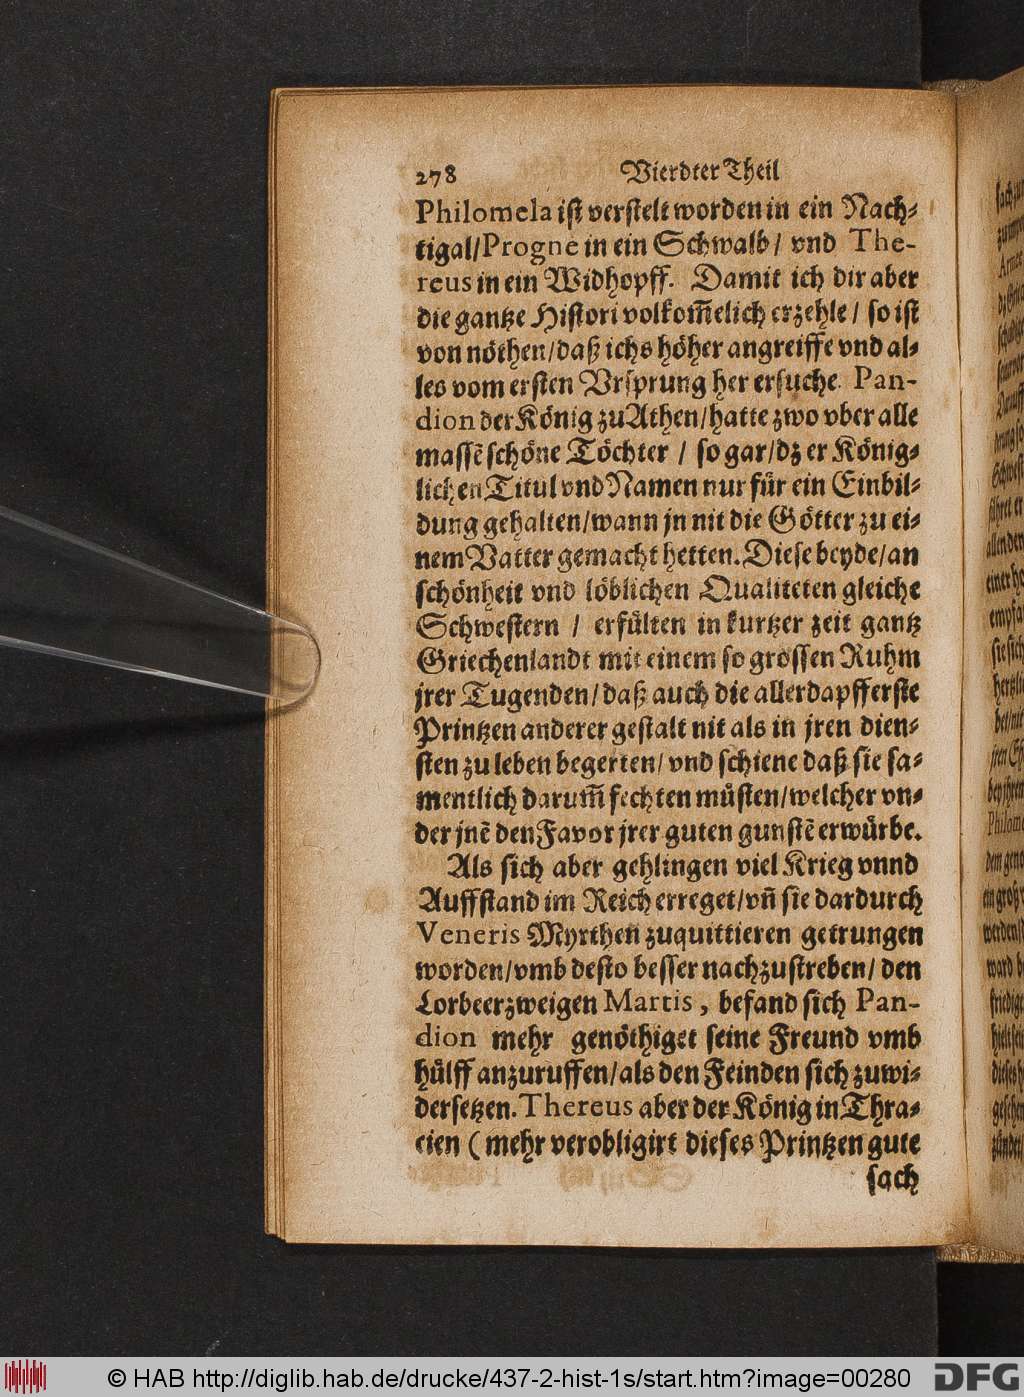 278 Vierdter Theil
Philomela ist verstelt worden in ein Nach-
tigal/Progne in ein Schwalb/ vnd The-
reus in ein Widhopff. Damit ich dir aber
die gantze Histori volkom̃elich erzehle / so ist
von nöthen/daß ichs höher angreiffe vnd al-
les vom ersten Vrsprung her ersuche. Pan-
dion der König zu Athen/hatte zwo vber alle
massẽ schöne Töchter / so gar/dz er König-
lichen Titul vnd Namen nur für ein Einbil-
dung gehalten/wann jn nit die Götter zu ei-
nem Vatter gemacht hetten. Diese beyde/an
schönheit vnd löblichen Qualiteten gleiche
Schwestern / erfülten in kurtzer zeit gantz
Griechenlandt mit einem so grossen Ruhm
jrer Tugenden/daß auch die allerdapfferste
Printzen anderer gestalt nit als in jren dien-
sten zu leben begerten/ vnd schiene daß sie sa-
mentlich darum̃ fechten müsten/welcher vn-
der jnẽ den Favor jrer guten gunstẽ erwürbe.
Als sich aber gehlingen viel Krieg vnnd
Auffstand im Reich erreget/vn̄ sie dardurch
Veneris Myrthen zuquittieren getrungen
worden/vmb desto besser nachzustreben/ den
Lorbeerzweigen Martis, befand sich Pan-
dion mehr genöthiget seine Freund vmb
hülff anzuruffen/als den Feinden sich zuwi-
dersetzen. Thereus aber der König in Thra-
cien (mehr verobligirt dieses Printzen gute
sach
© HAB http://diglib.hab.de/drucke/437-2-hist-1s/start.htm?image=00280
DFG